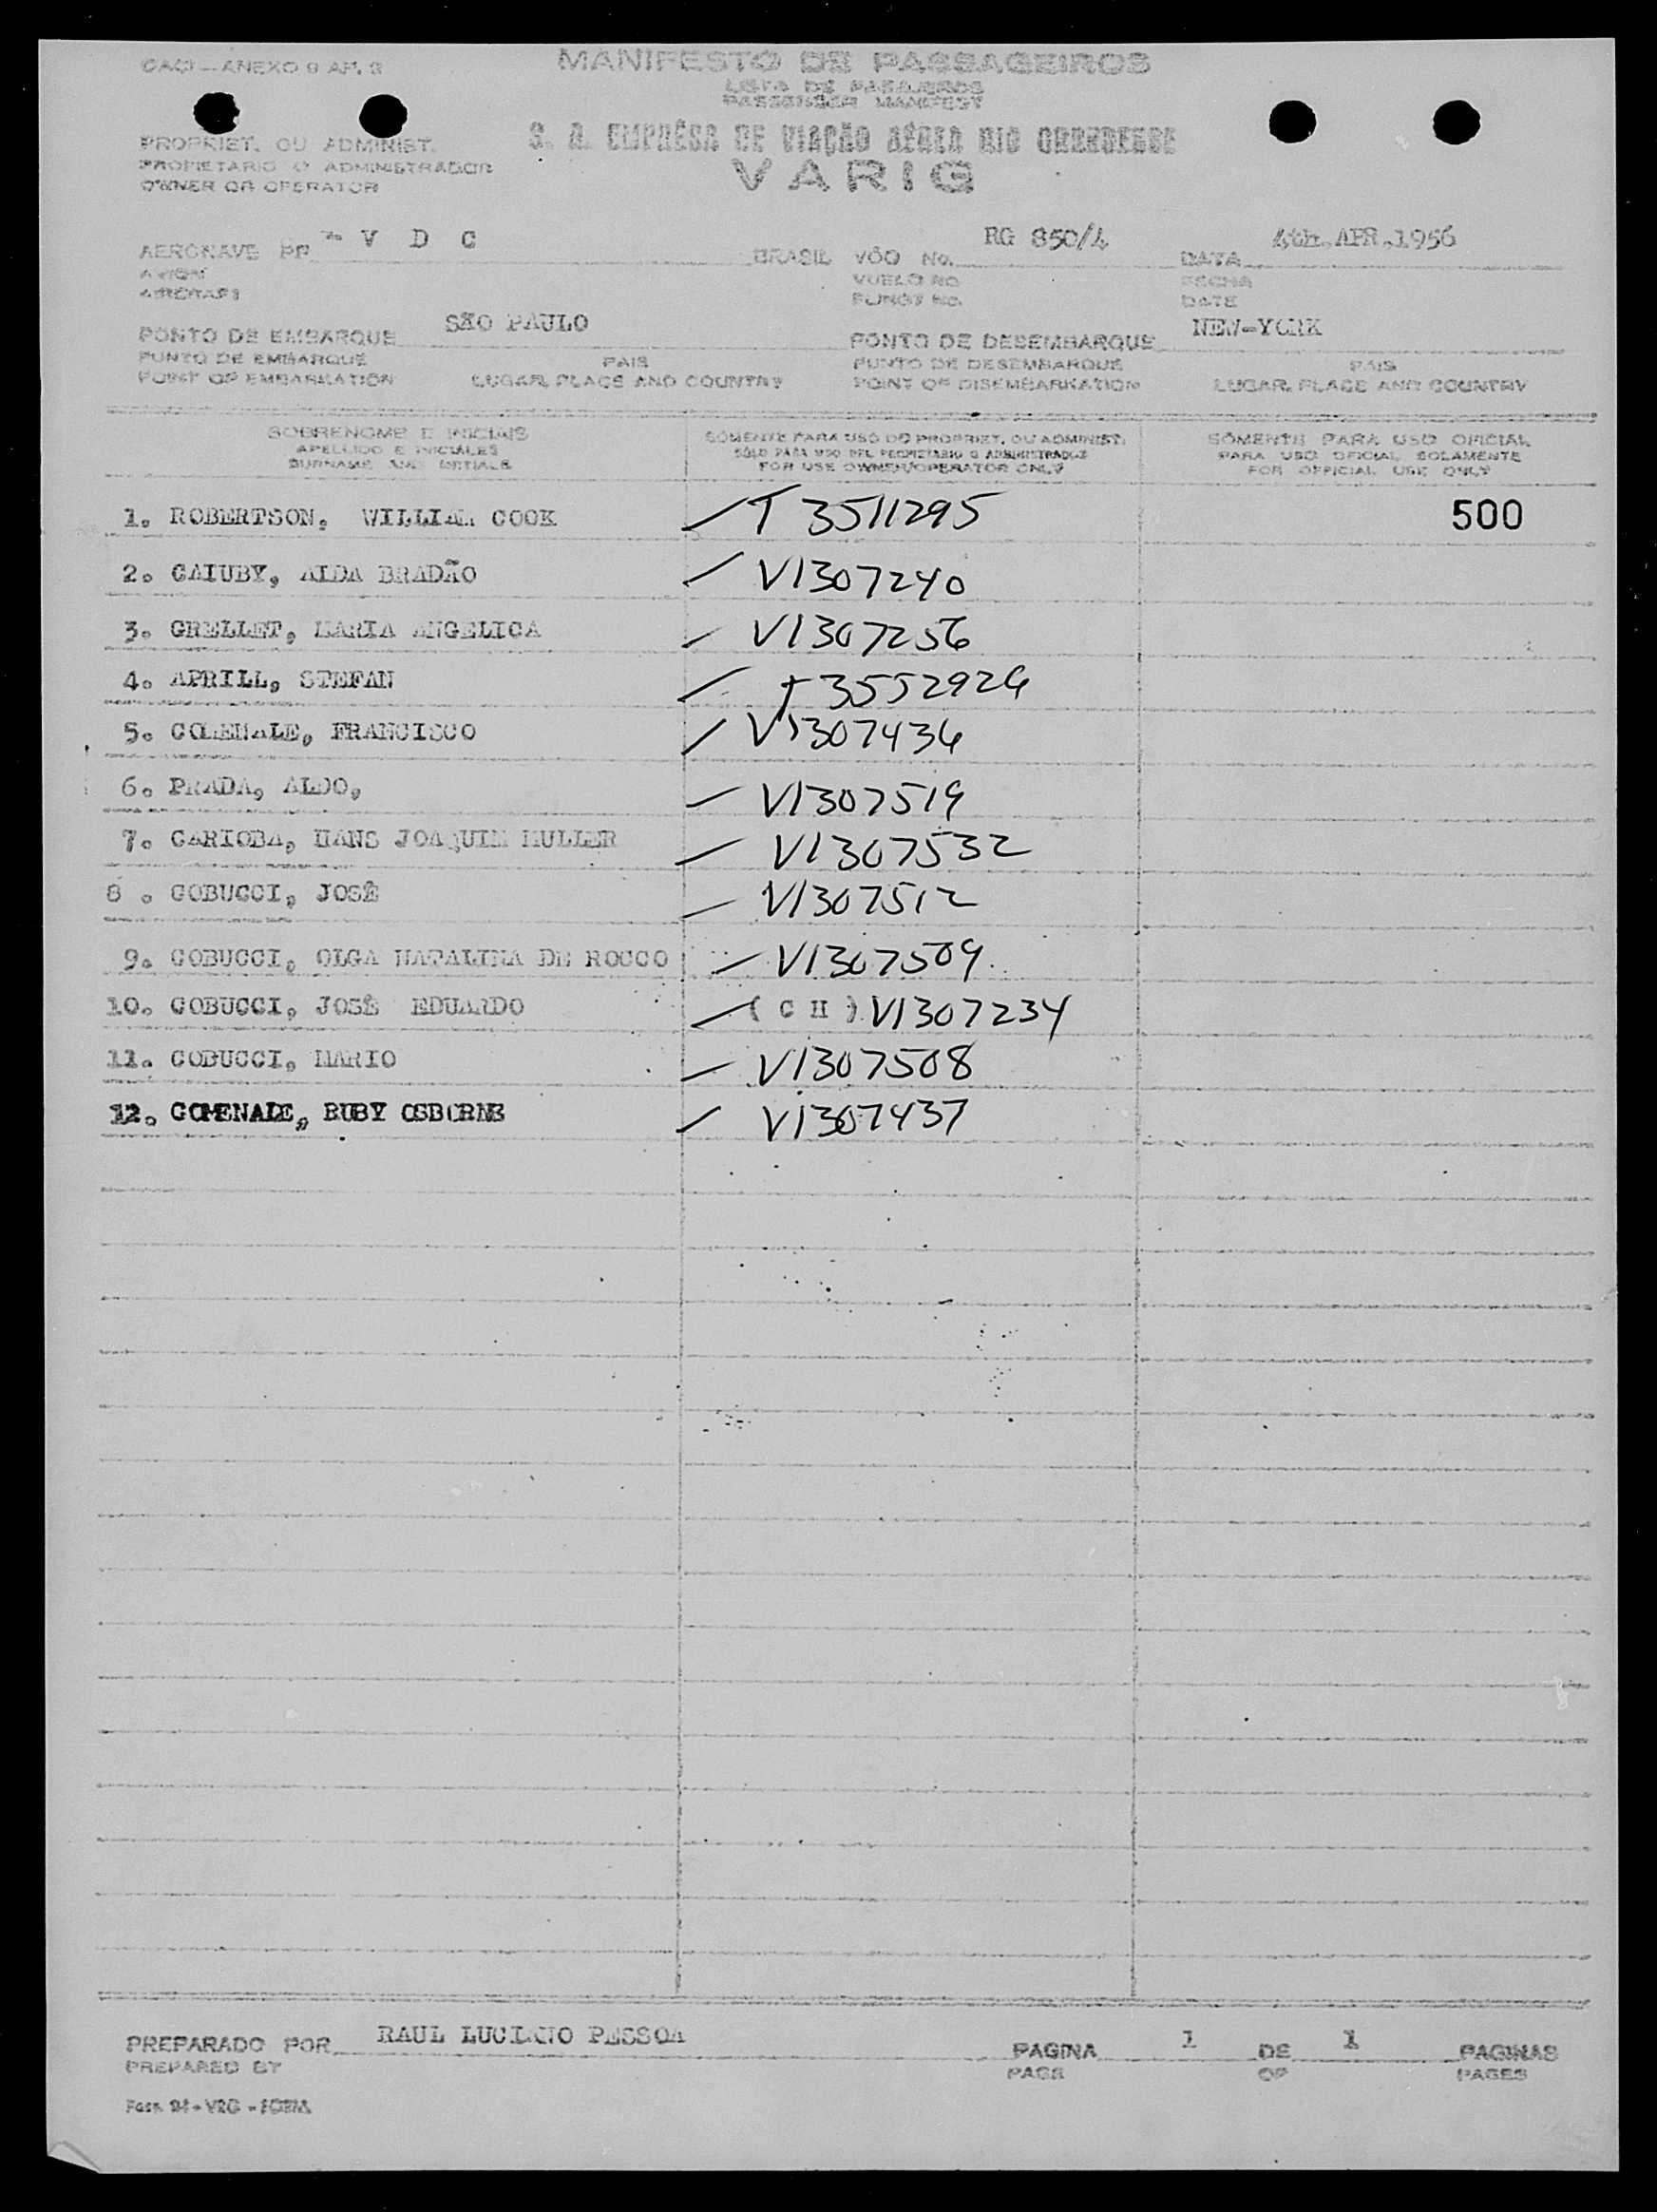 CACI — ANEXO 9 AP. 3
MANIFESTO DE PASSAGEIROS
LISTA DE PASAJEROS
PASSENGER MANIFEST
PROPRIET. OU ADMINIST.
PROPIETARIO O ADMINISTRADOR
OWNER OR OPERATOR
S. A. EMPRÊSA DE VIAÇÃO AÉREA RIO GRANDENSE
VARIG
AERONAVE PP - V D C BRASIL VÔO No. RG 850/4 DATA 4th.APR.1956
AVION VUELO NO. FECHA
AIRCRAFT FLIGHT No. DATE
PONTO DE EMBARQUE SÃO PAULO PONTO DE DESEMBARQUE NEW-YORK
PUNTO DE EMBARQUE PAIS PUNTO DE DESEMBARQUE PAIS
POINT OF EMBARKATION LUGAR, PLACE AND COUNTRY POINT OF DISEMBARKATION LUGAR, PLACE AND COUNTRY
SOBRENOME E INICIAIS SÒMENTE PARA USO DO PROPRIET. OU ADMINIST. SÒMENTE PARA USO OFICIAL
APELLIDO E INICIALES SÓLO PARA USO DEL PROPIETARIO O ADMINISTRADOR PARA USO OFICIAL SOLAMENTE
SURNAME AND INITIALS FOR USE OWNER/OPERATOR ONLY FOR OFFICIAL USE ONLY
1. ROBERTSON, WILLIAM COOK T 3511295 500
2. CAIUBY, ALDA BRADÃO V1307240
3. GRELLET, MARIA ANGELICA V1307256
4. APRILL, STEFAN T 3552926
5. COMENALE, FRANCISCO V1307436
6. PRADA, ALDO, V1307519
7. CARIOBA, HANS JOAQUIM MULLER V1307532
8 . COBUCCI, JOSÊ V1307512
9. COBUCCI, OLGA NATALINA DE ROCCO V1307509
10. COBUCCI, JOSÊ EDUARDO ( C H ) V1307234
11. COBUCCI, MARIO V1307508
12. COMENALE, RUBY OSBORNE V1307437
PREPARADO POR RAUL LUCIANO PESSOA PAGINA 1 DE 1 PAGINAS
PREPARED BY PAGE OF PAGES